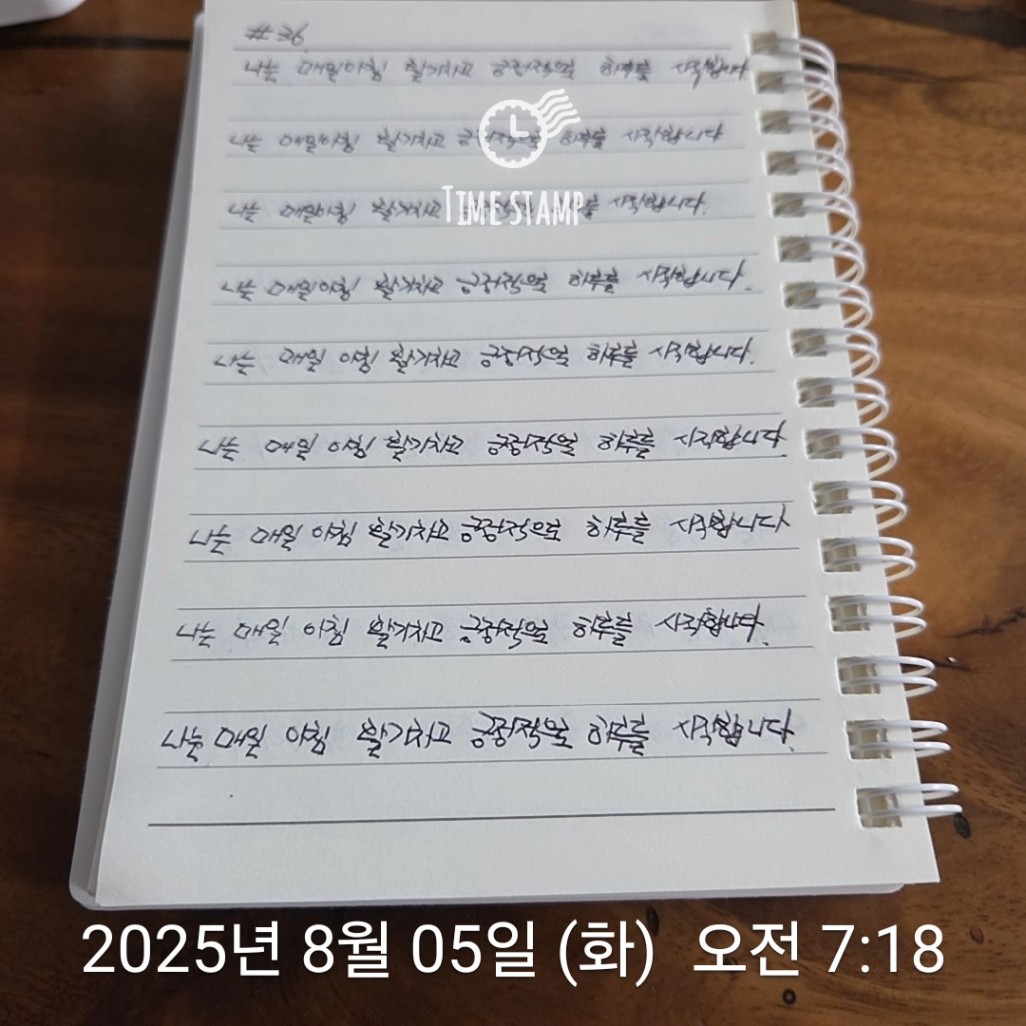 #36
나는 매일아침 활기차고 긍정적으로 하루를 시작합니다
나는 매일아침 활기차고 긍정적으로 하루를 시작합니다
TIMESTAMP
나는 매일아침 활기차고 를 시작합니다.
나는 매일아침 활기차고 긍정적으로 하루를 시작합니다.
나는 매일 아침 활기차고 긍정적으로 하루를 시작합니다.
나는 매일 아침 활기차고 긍정적으로 하루를 시작합니다.
나는 매일 아침 활기차고 긍정적으로 하루를 시작합니다
나는 매일 아침 활기차고 긍정적으로 하루를 시작합니다.
나는 매일 아침 활기차고 긍정적으로 하루를 시작합니다.
2025년 8월 05일 (화) 오전 7:18